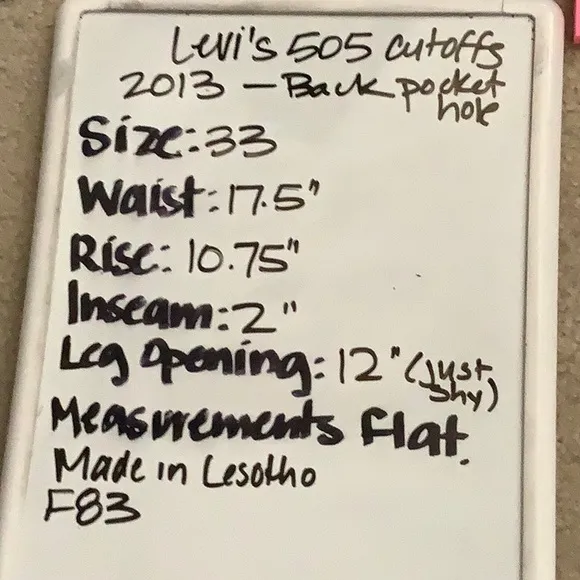 Levi's 505 cutoffs
2013 - Back pocket
hole
Size: 33
Waist: 17.5"
Rise: 10.75"
Inseam: 2"
Leg Opening: 12" (Just
Shy)
Measurements Flat.
Made in Lesotho
F83